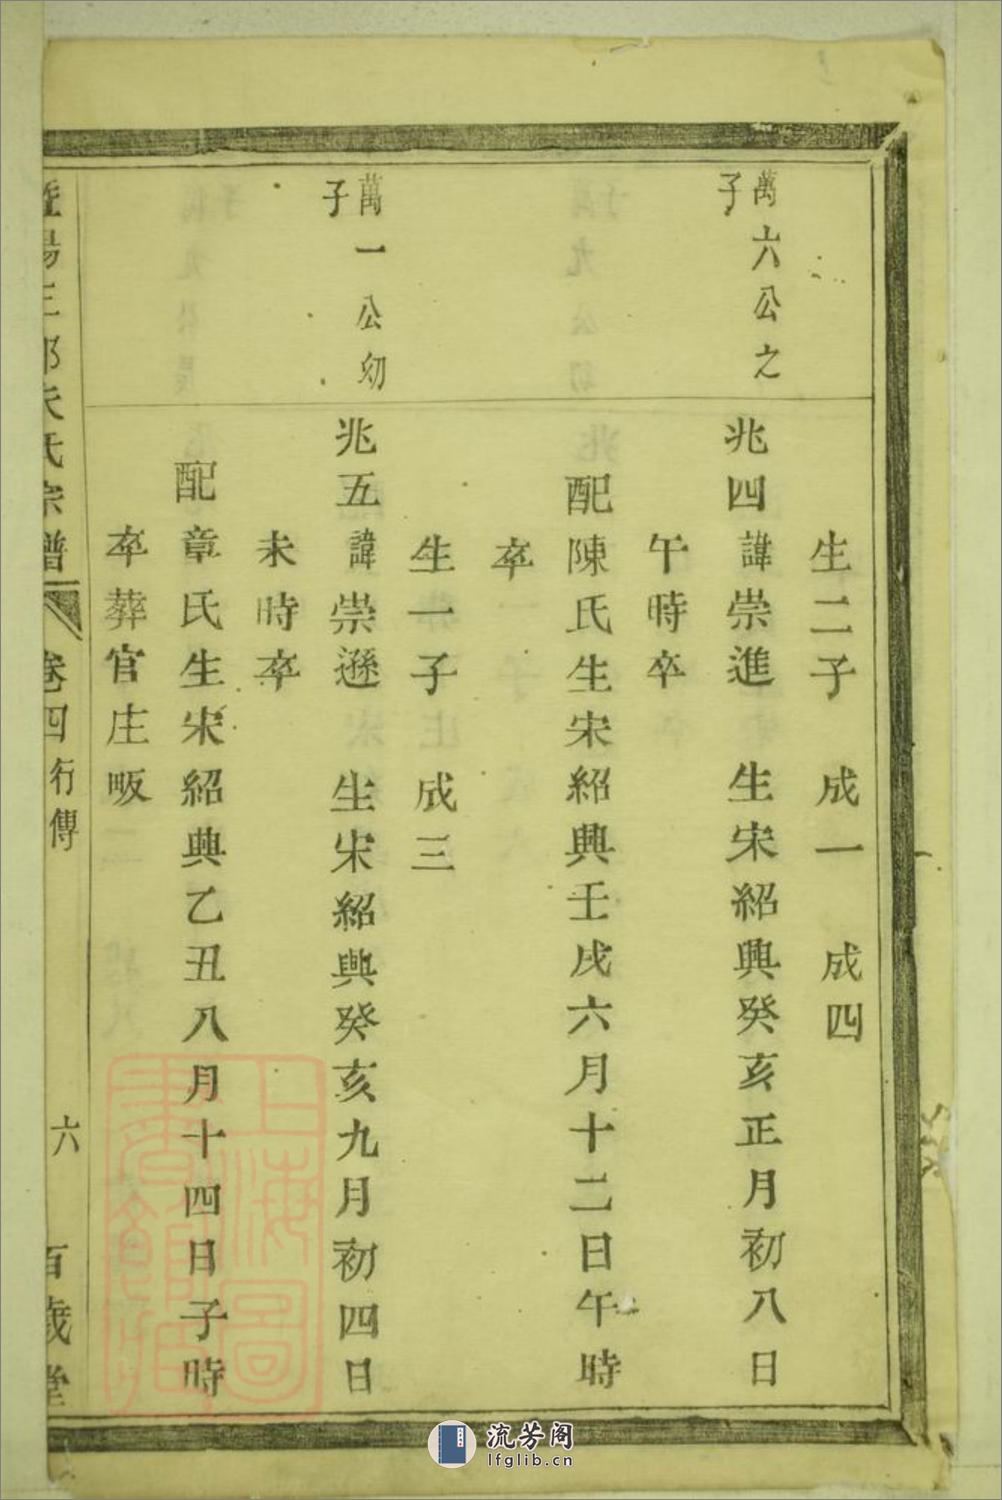 生二子 成一 成四
萬六公之
子
兆四諱崇進 生宋紹興癸亥正月初八日
午時卒
配陳氏生宋紹興壬戌六月十二日午時
卒
生一子 成三
萬一公幼
子
兆五諱崇遜 生宋紹興癸亥九月初四日
未時卒
配章氏生宋紹興乙丑八月十四日子時
卒葬官庄畈
暨陽三部朱氏宗譜 卷四 行傳 六 百歲堂
上海圖書館藏
流芳阁
lfglib.cn